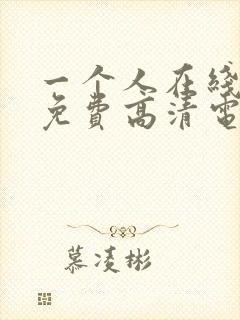 一个人在线
免费高清电
慕凌彬